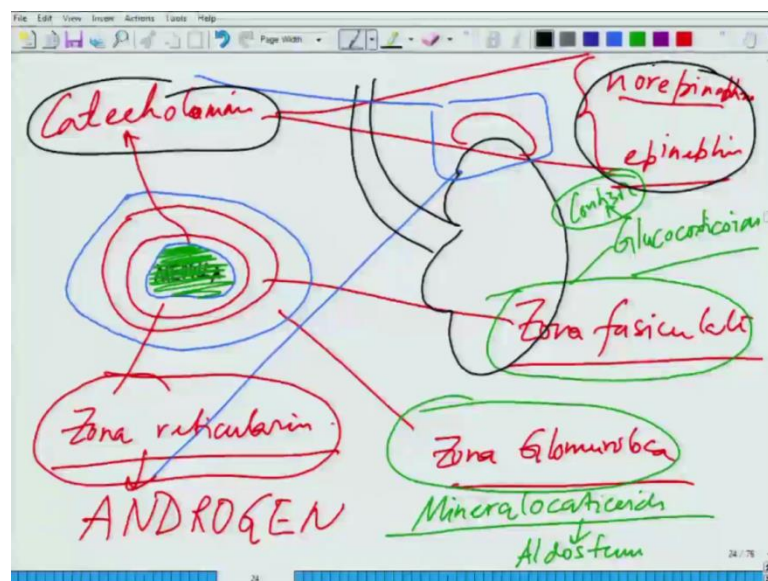 File Edit View Insert Actions Tools Help
Page Width
Catecholamin
norepinephrin
epinephrin
Cortisol
Glucocorticoian
MEDULLA
Zona fasiculati
Zona reticularin
ANDROGEN
Zona Glomuroloca
Mineralocaticoids
Aldosteum
24 / 76
24